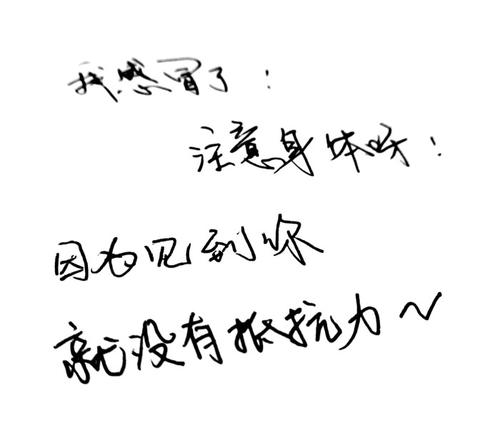 我感冒了！
注意身体呀！
因为见到你
就没有抵抗力～